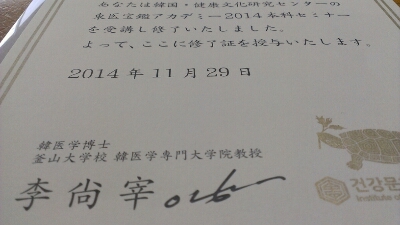 あなたは韓国・健康文化研究センターの
東医宝鑑アカデミー2014本科セミナー
を受講し修了いたしました。
よって、ここに修了証を授与いたします。
2014年11月29日
韓医学博士
釜山大学校 韓医学専門大学院教授
李尙宰
건강문
Institute of